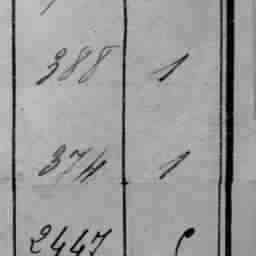 388 1
374 1
2447